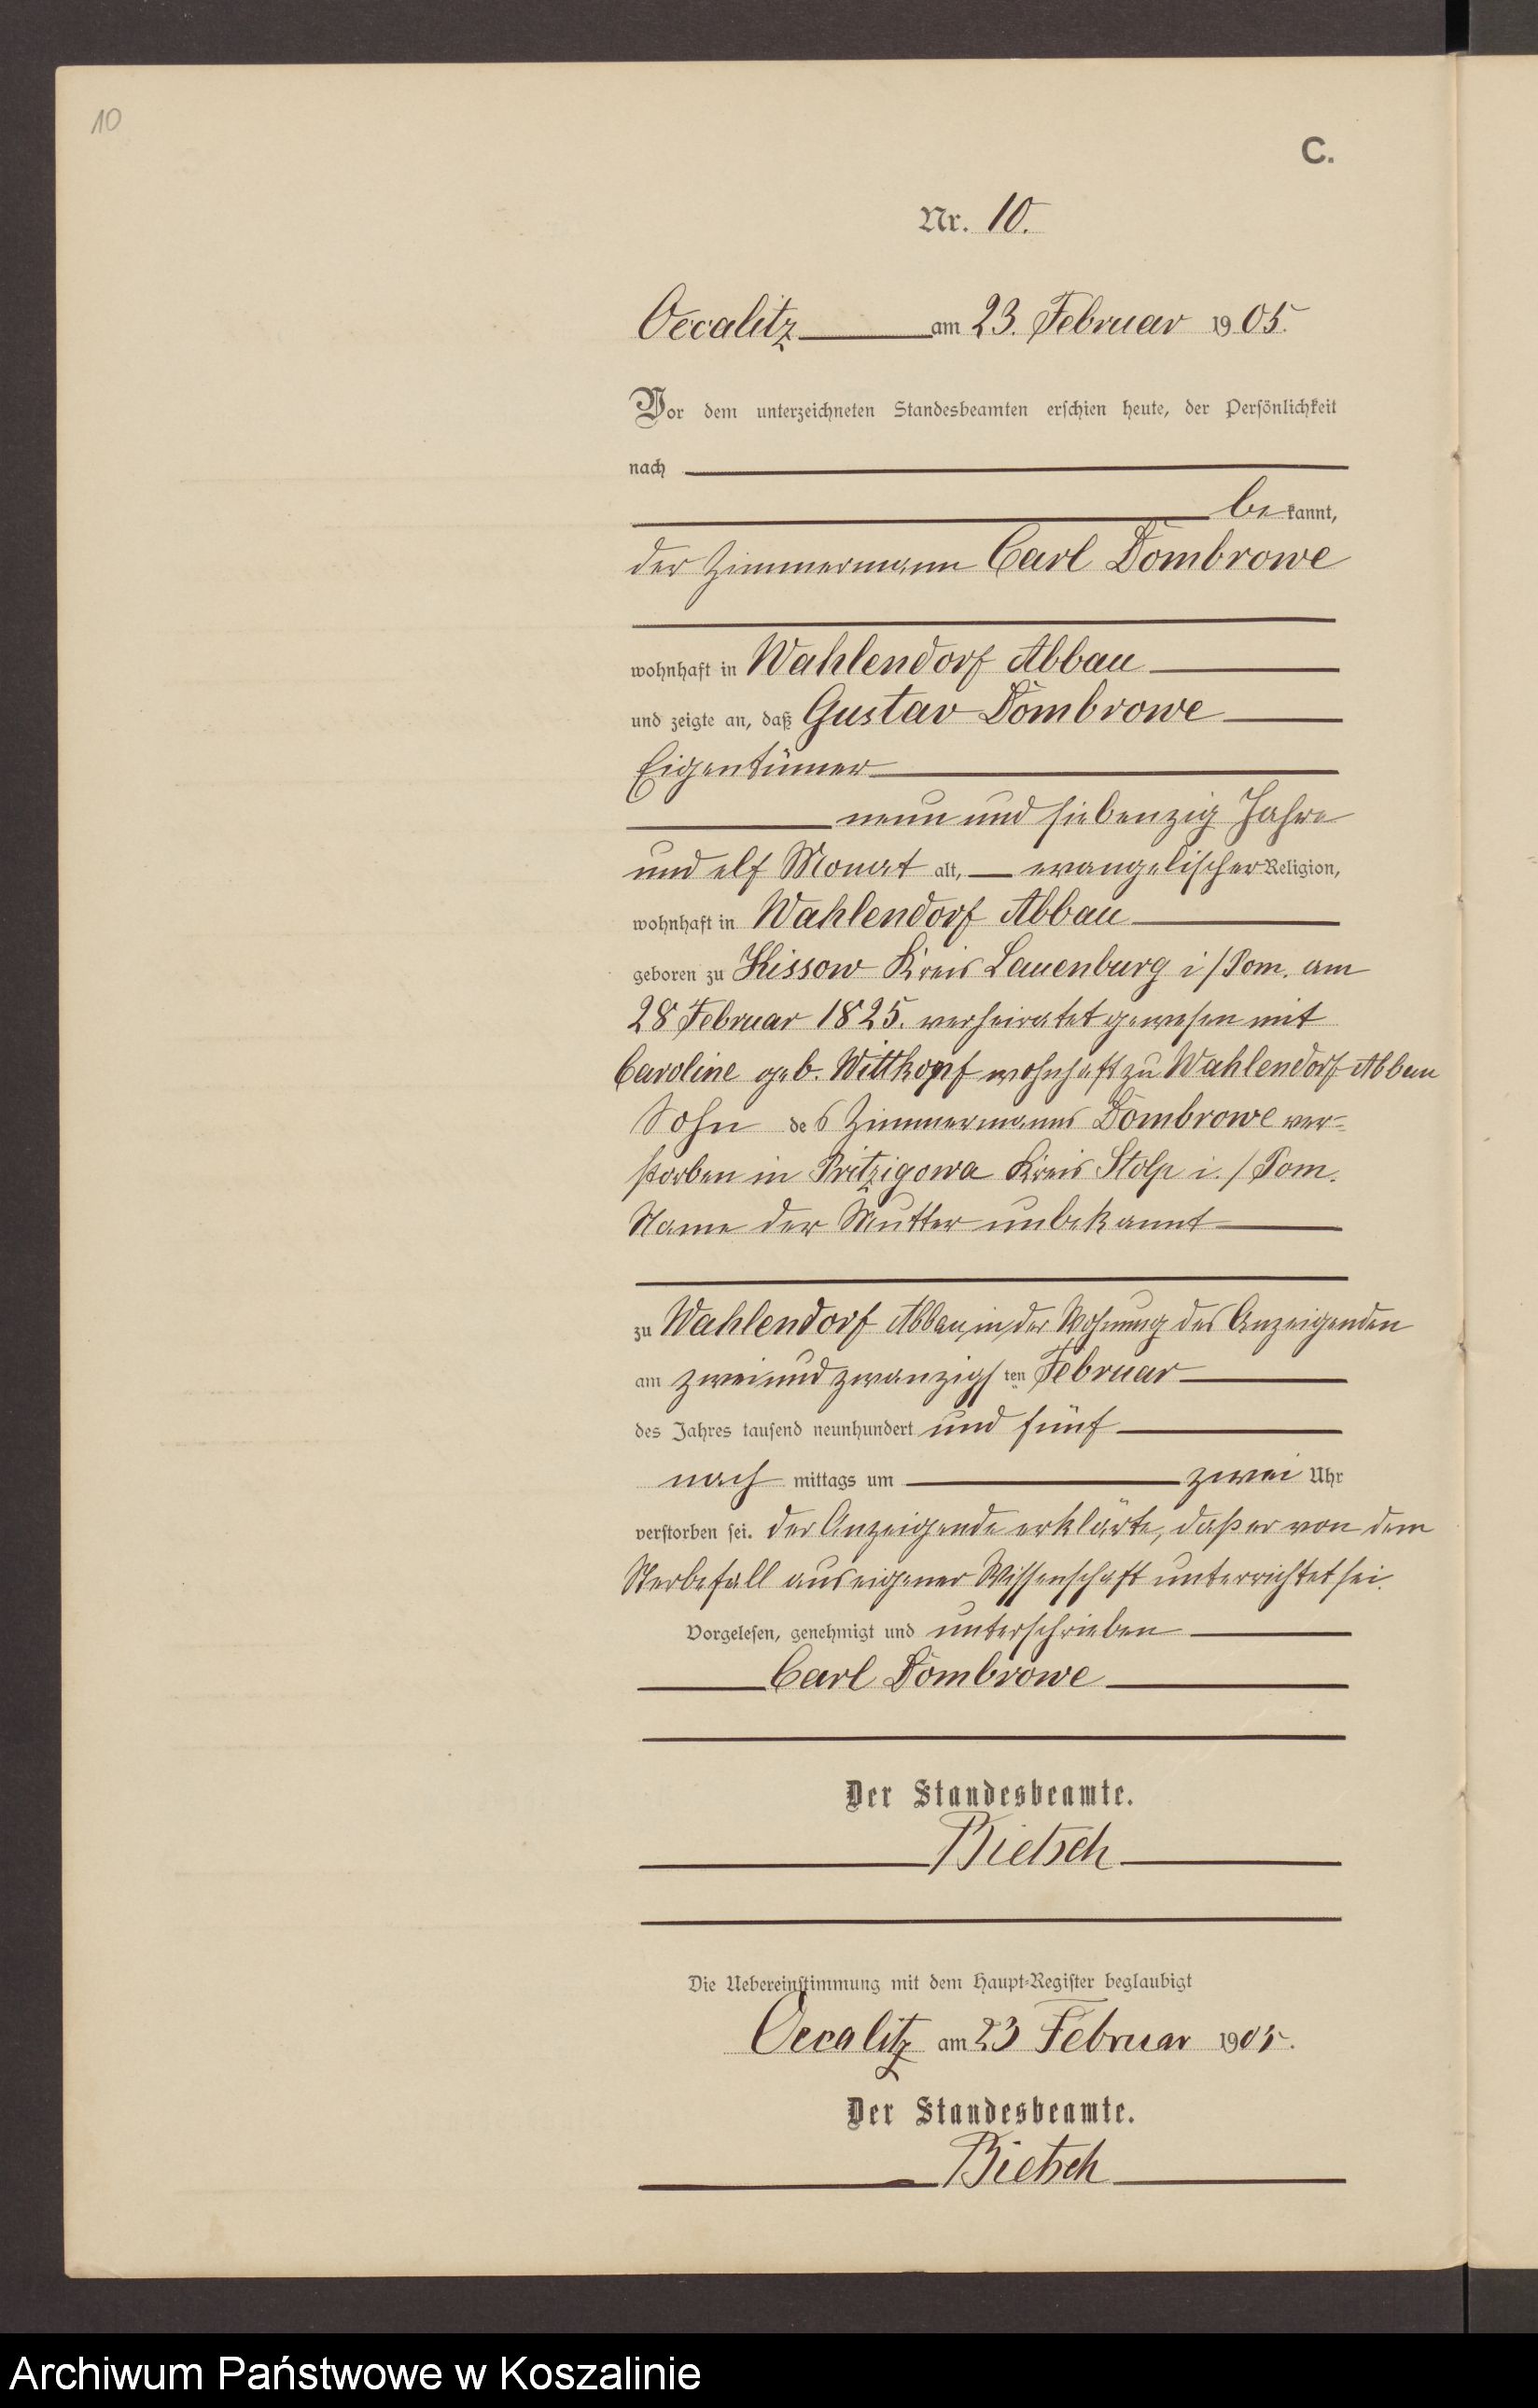 10
C.
Nr. 10.
Oecalitz am 23. Februar 1905.
Vor dem unterzeichneten Standesbeamten erschien heute, der Persönlichkeit
nach
bekannt,
der Zimmermann Carl Dombrowe
wohnhaft in Wahlendorf Abbau
und zeigte an, daß Gustav Dombrowe
Eigentümer
neun und siebenzig Jahre
und elf Monat alt, evangelischer Religion,
wohnhaft in Wahlendorf Abbau
geboren zu Kissow Kreis Lauenburg i/Pom. am
28 Februar 1825. verheiratet gewesen mit
Caroline geb. Wittkopf wohnhaft zu Wahlendorf Abbau
Sohn des Zimmermanns Dombrowe ver-
storben in Pritzigowa Kreis Stolp i./Pom.
Name der Mutter unbekannt
zu Wahlendorf Abbau, in der Wohnung des Anzeigenden
am zweiundzwanzigsten Februar
des Jahres tausend neunhundert und fünf
nachmittags um zwei Uhr
verstorben sei. der Anzeigende erklärte, daß er von dem
Sterbefall aus eigener Wissenschaft unterrichtet sei.
Vorgelesen, genehmigt und unterschrieben
Carl Dombrowe
Der Standesbeamte.
Bietsch
Die Uebereinstimmung mit dem Haupt-Register beglaubigt
Oecalitz am 23 Februar 1905.
Der Standesbeamte.
Bietsch
Archiwum Państwowe w Koszalinie